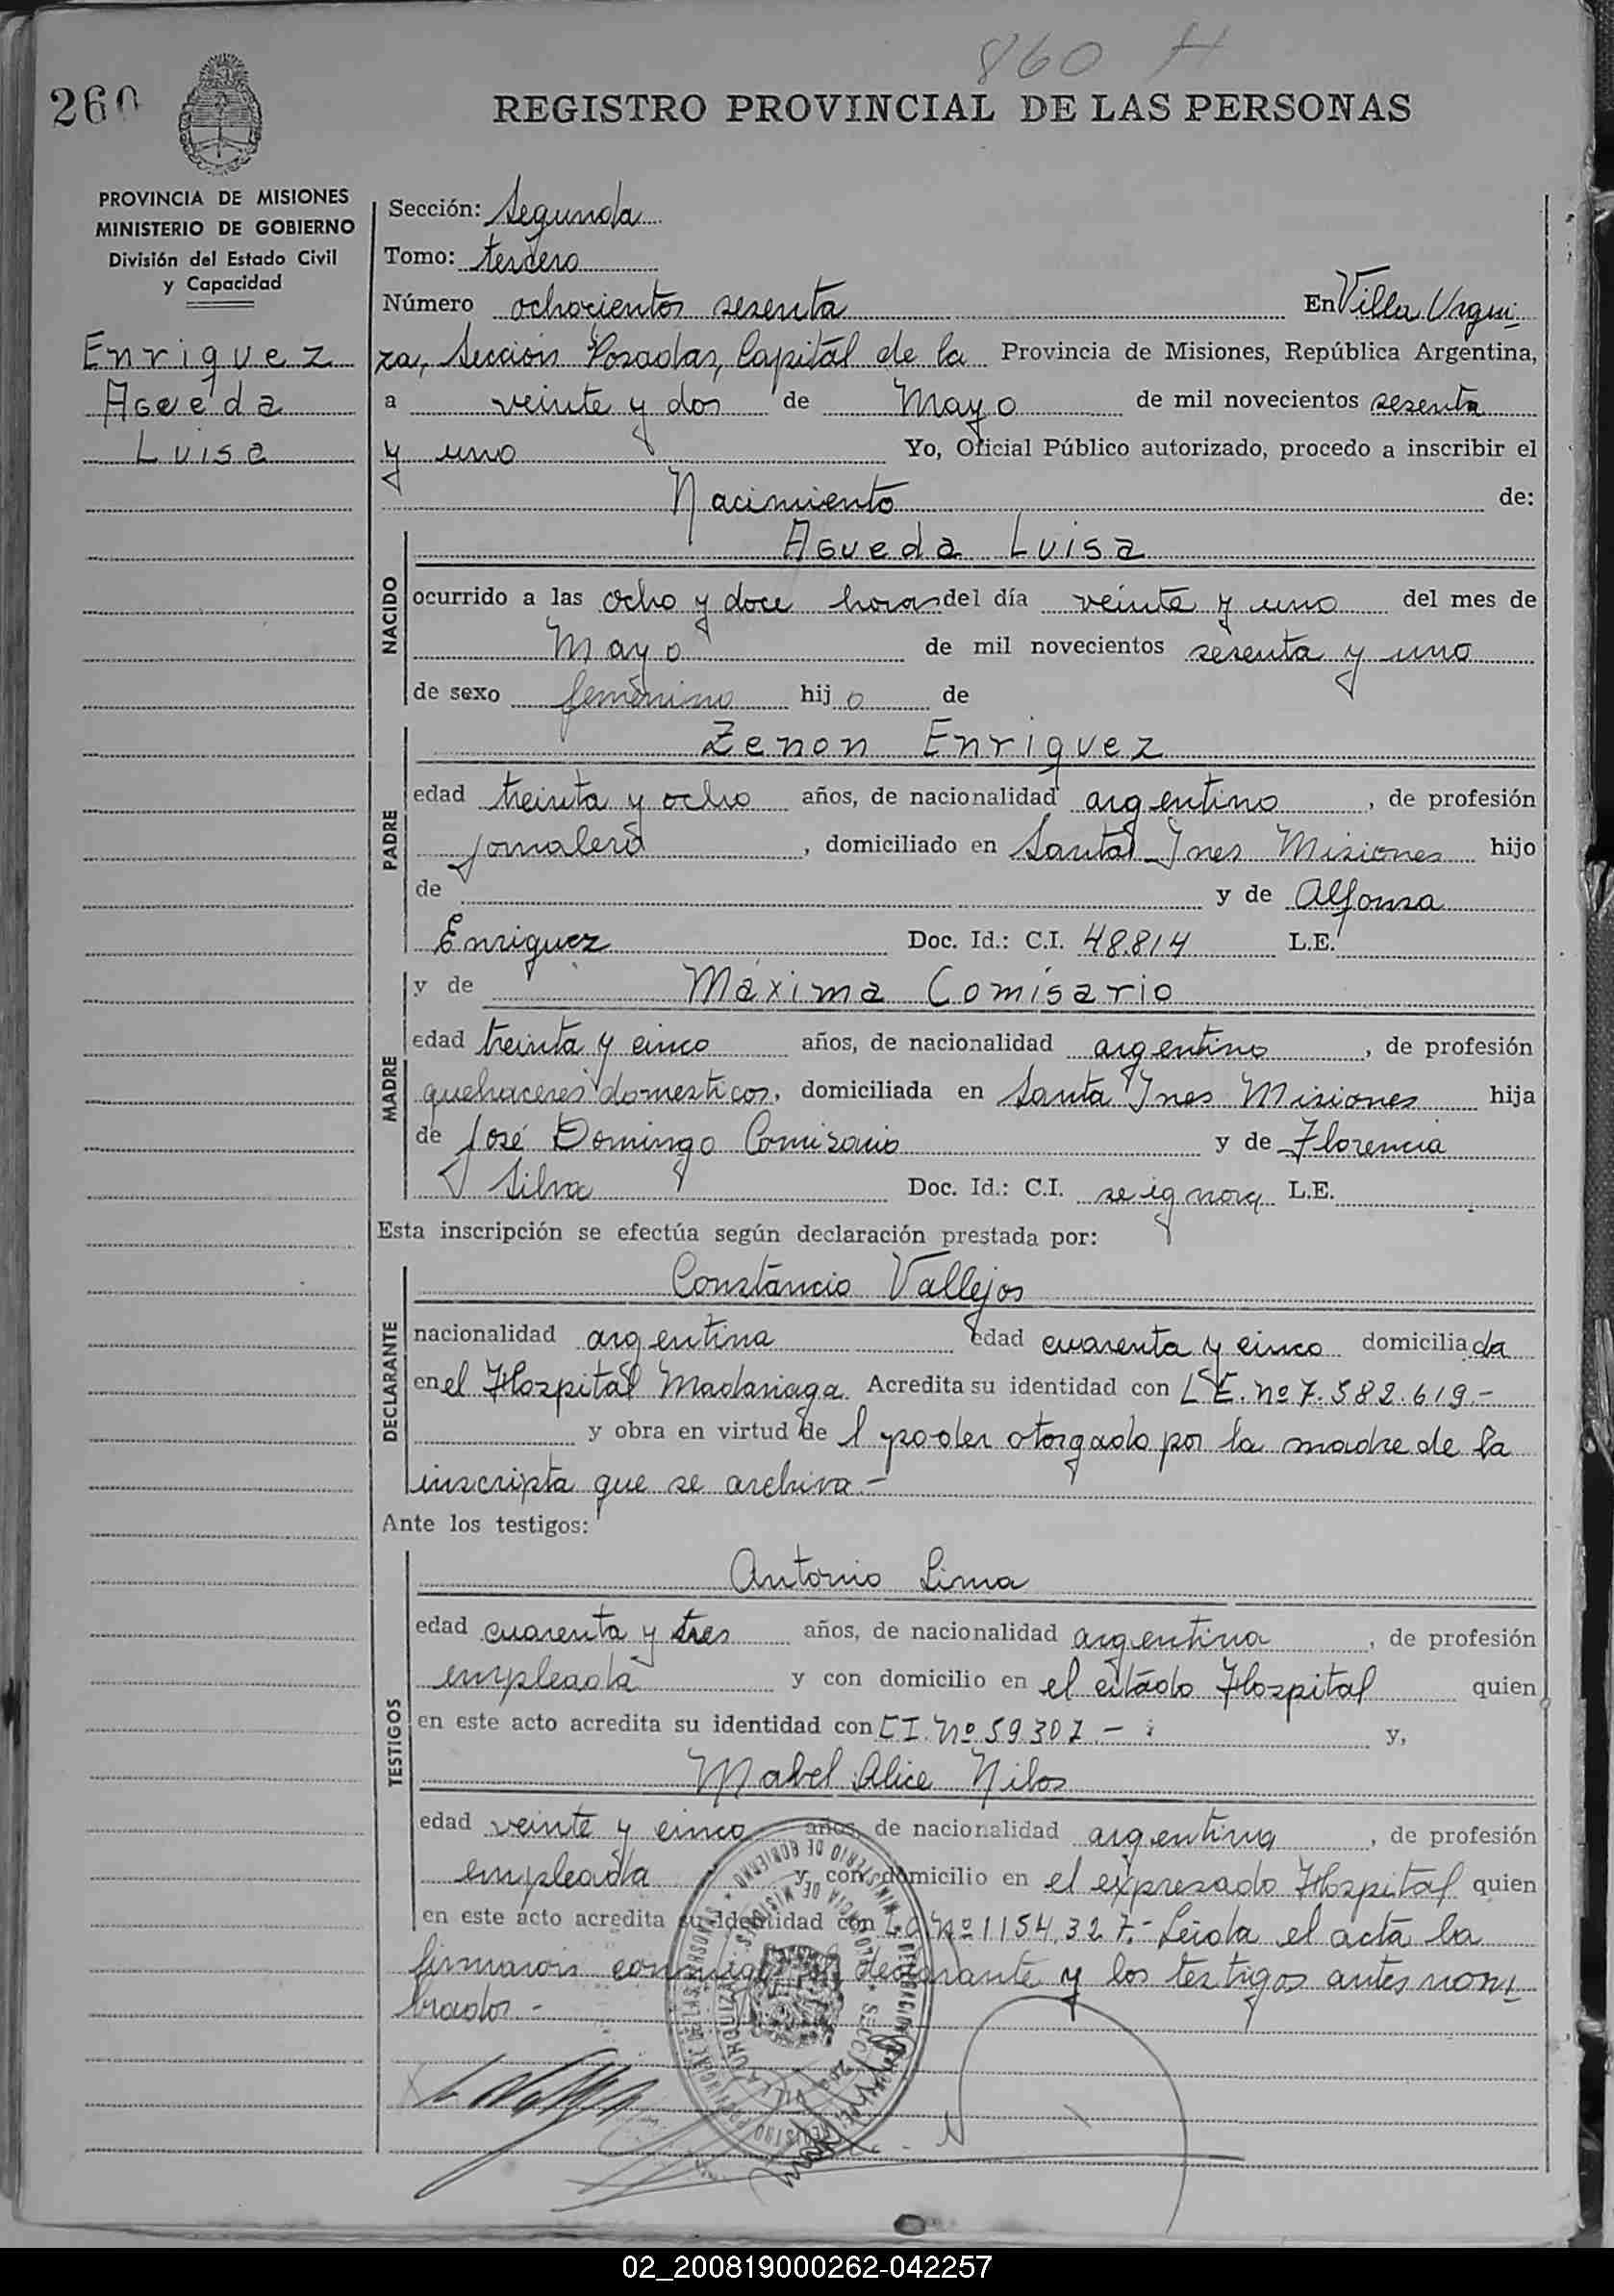 860 H
260
REGISTRO PROVINCIAL DE LAS PERSONAS
PROVINCIA DE MISIONES
MINISTERIO DE GOBIERNO
División del Estado Civil
y Capacidad
Enriquez
Agueda
Luisa
Sección: Segunda
Tomo: tercero
Número ochocientos sesenta En Villa Urqui-
za, Sección Posadas, Capital de la Provincia de Misiones, República Argentina,
a veinte y dos de Mayo de mil novecientos sesenta
y uno Yo, Oficial Público autorizado, procedo a inscribir el
Nacimiento de:
NACIDO
Agueda Luisa
ocurrido a las ocho y doce horas del día veinte y uno del mes de
Mayo de mil novecientos sesenta y uno
de sexo femenino hijo de
PADRE
Zenon Enriquez
edad treinta y ocho años, de nacionalidad argentino, de profesión
jornalero, domiciliado en Santa Ines Misiones hijo
de y de Alfonsa
Enriquez Doc. Id.: C.I. 48.814 L.E.
MADRE
y de Máxima Comisario
edad treinta y cinco años, de nacionalidad argentino, de profesión
quehaceres domesticos, domiciliada en Santa Ines Misiones hija
de José Domingo Comisario y de Florencia
Silva Doc. Id.: C.I. se ignora L.E.
Esta inscripción se efectúa según declaración prestada por:
DECLARANTE
Constancio Vallejos
nacionalidad argentina edad cuarenta y cinco domiciliada
en el Hospital Madariaga. Acredita su identidad con L.E. nº 7.582.619.-
y obra en virtud del poder otorgado por la madre de la
inscripta que se archiva.-
Ante los testigos:
TESTIGOS
Antonio Lima
edad cuarenta y tres años, de nacionalidad argentina, de profesión
empleada y con domicilio en el citado Hospital quien
en este acto acredita su identidad con C.I. Nº 59.307.- y,
Mabel Alice Nilos
edad veinte y cinco años, de nacionalidad argentina, de profesión
empleada y con domicilio en el expresado Hospital quien
en este acto acredita su identidad con L.C. Nº 1154.327.- Leida el acta la
firmaron conmigo el declarante y los testigos antes nom-
brados.-
02_200819000262-042257